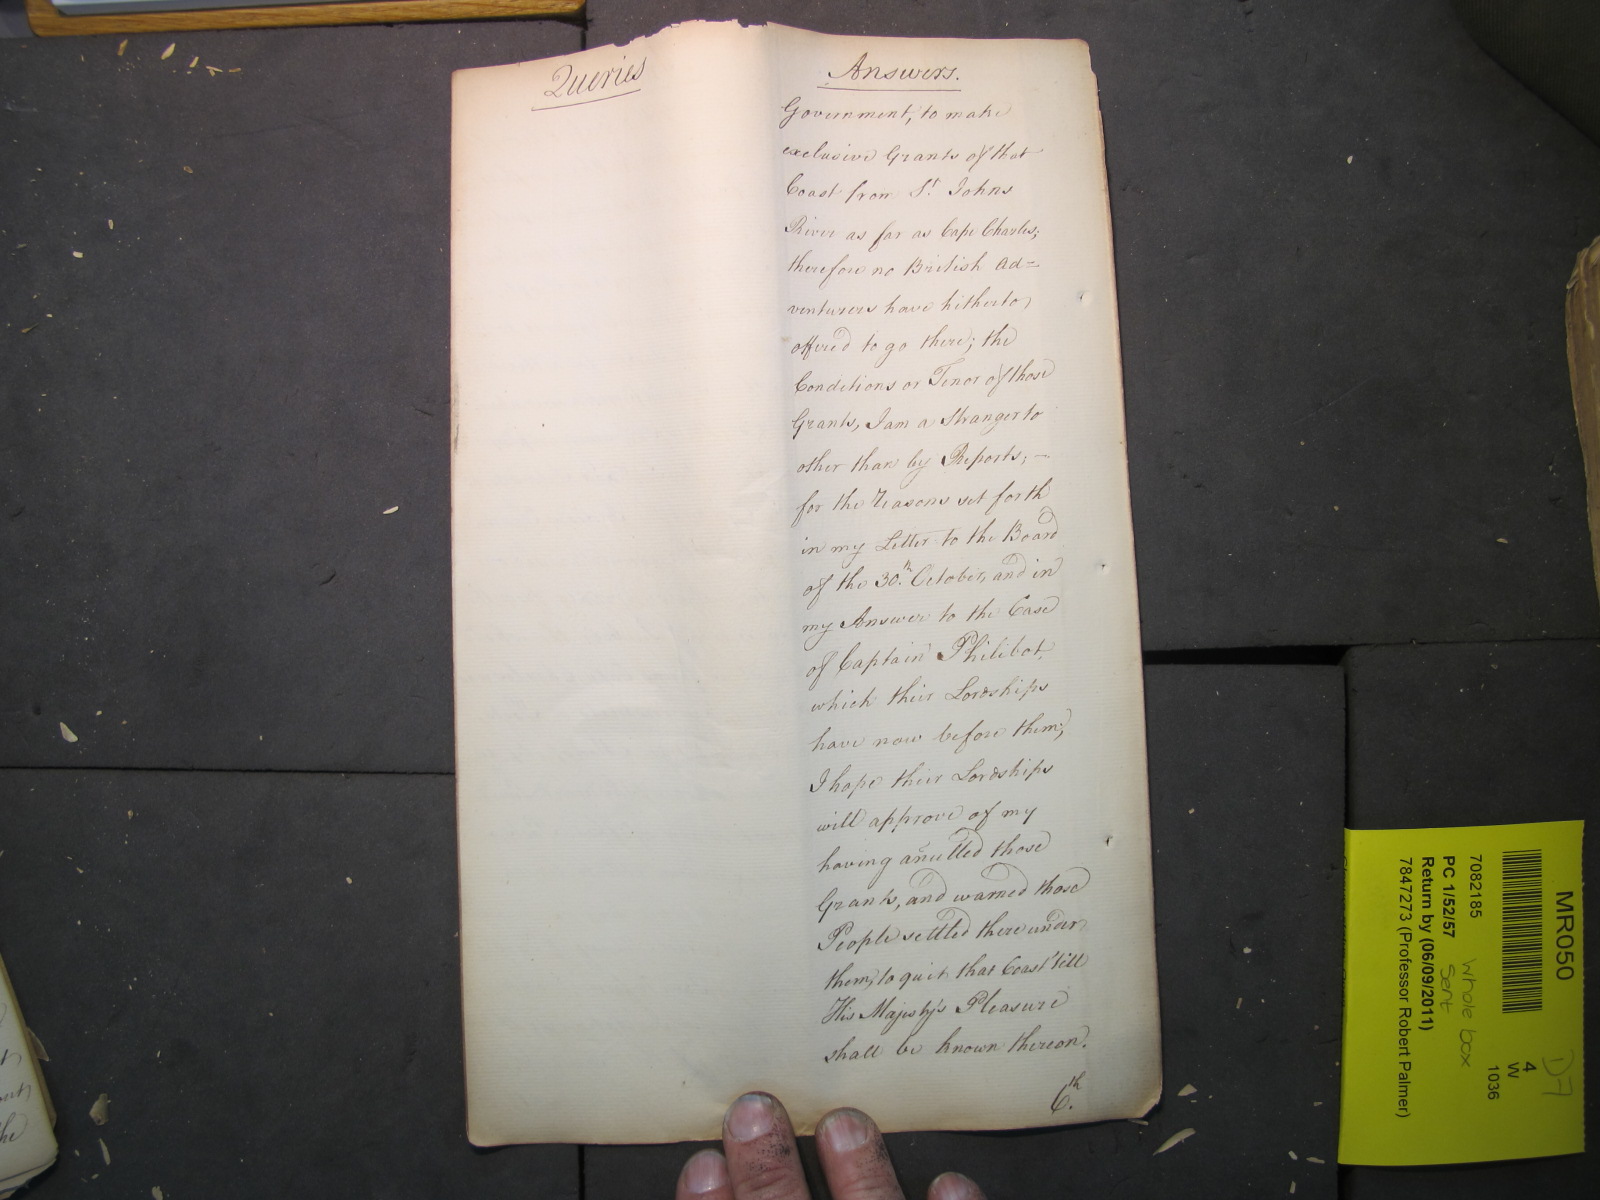 Queries
Answers.
Government, to make
exclusive Grants of that
Coast from St. Johns
River as far as Cape Charles;
therefore no British Ad=
venturers have hitherto
offered to go there; the
Conditions or Tenor of those
Grants, I am a Stranger to
other than by Reports; —
for the Reasons set forth
in my Letter to the Board
of the 30th. October, and in
my Answer to the Case
of Captain Philibot,
which their Lordships
have now before them;
I hope their Lordships
will approve of my
having anulled those
Grants, and warned those
People settled there under
them, to quit that Coast 'till
His Majesty's Pleasure
shall be known thereon.
6th.
MR050
7082185
PC 1/52/57
Return by (06/09/2011)
7847273 (Professor Robert Palmer)
Whole box
Sent
4
W
1036
D7
the